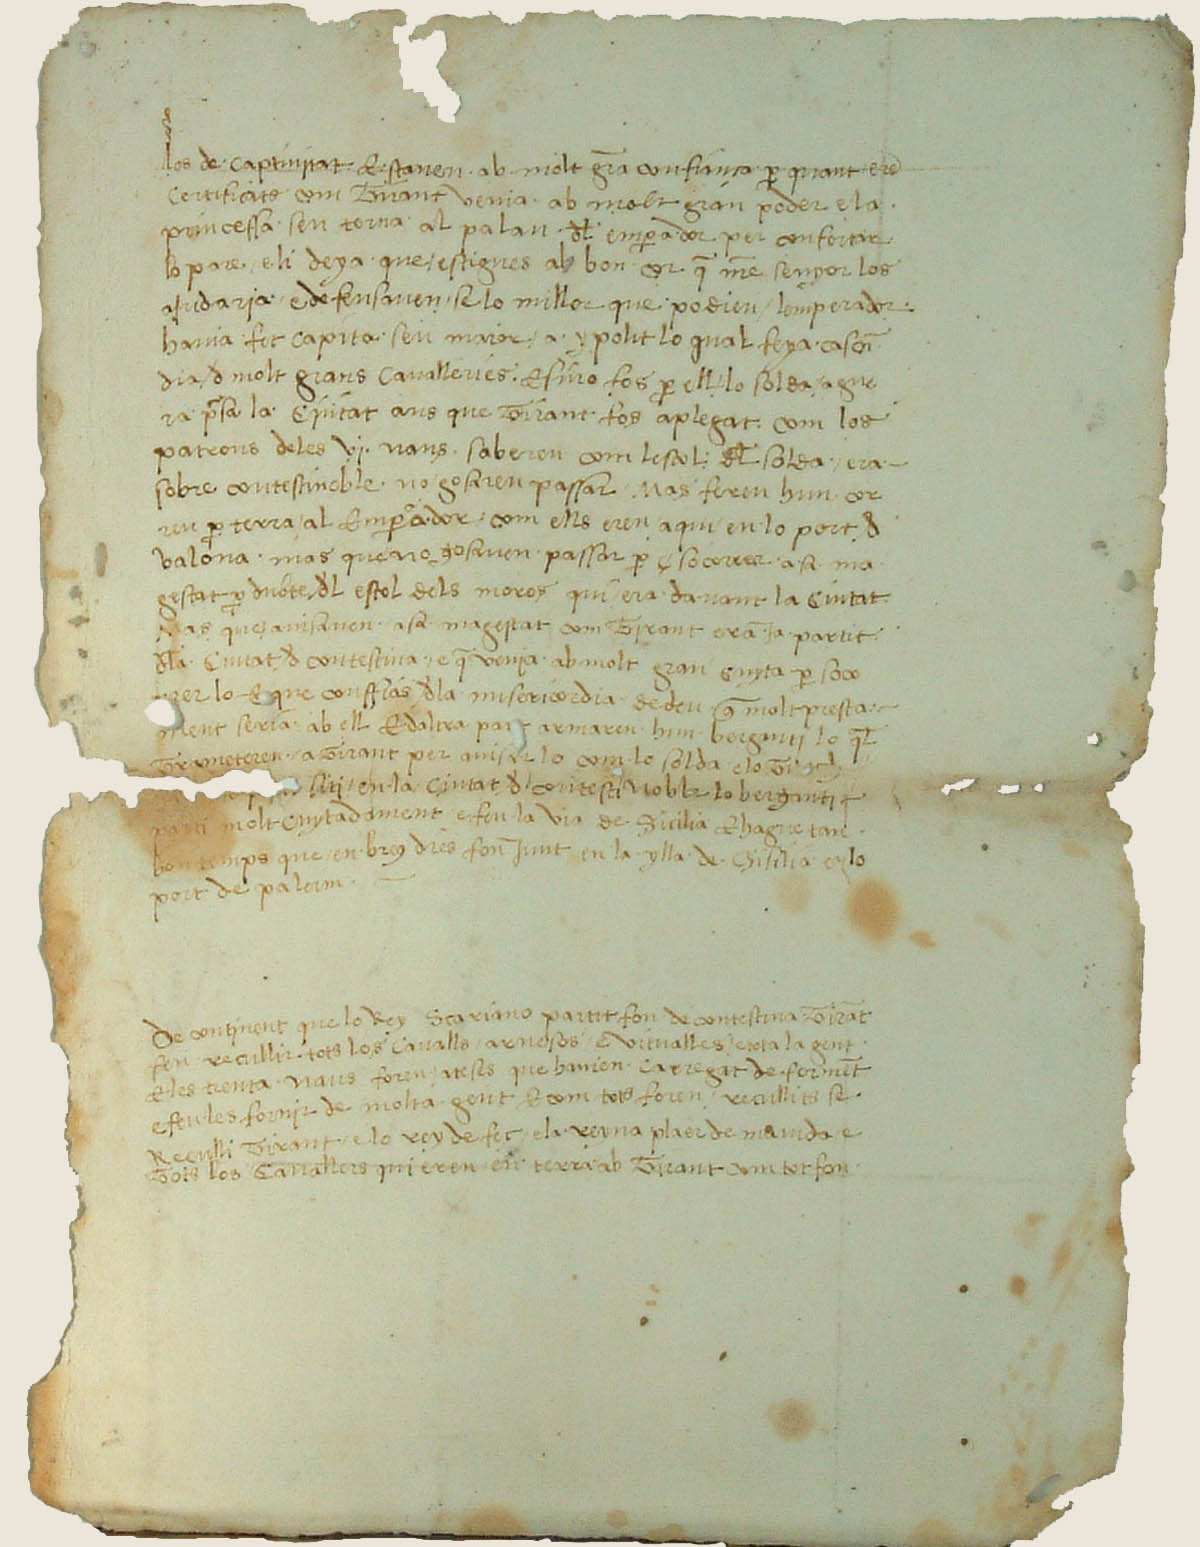 los de captiuitat E stauen ab molt gra confiança p quant ere
Certificats com Tirant venia ab molt gran poder e la
princessa sen torna al palau dl emperador per confortar
lo pare e li deya que estigues ab bon cor q nre senyor los
aiudaria e defensauen se lo millor que podien lemperador
hauia fet capita seu maior a ypolit lo qual feya cascu
dia d molt grans Caualleries. E sino fos p ell lo solda ague
ra psa la Ciutat ans que Tirant fos aplegat. com los
patrons deles vj. naus saberen com lestol dl solda era
sobre contestinoble no gosaren passar Mas feren hun cor
reu p terra al Emperador com ells eren aqui en lo port d
valona mas que no gosauen passar p socorrer a sa ma
gestat p dubte dl estol dels moros qui era dauant la Ciutat
Mas que auisauen a sa magestat com Tirant era ia partit
dla Ciutat d contestina e q venia ab molt gran cuyta p soco
rrer lo E que confias dla misericordia de deu q molt presta
ment seria ab ell E daltra part armaren hun berganti lo ql
Trameteren a Tirant per auisar lo com lo solda e lo Turch
siti en la Ciutat d contesti Noble lo berganti
parti molt cuytadament e feu la via de Sicilia E hague tan
bon temps que en breu dies fon Junt en la ylla de Sisilia en lo
port de palerm
De continent que lo Rey Scariano partit fon de contestina Tirat
feu recullir tots los Caualls arnesos E vitualles e tota la gent
E les trenta naus foren ateses que hauien Carregat de forment
e feu les fornir de molta gent E com tots foren recullits se
Reculli Tirant e lo rey de feç e la reyna plaer de mauida e
Tots los Cauallers qui eren en terra ab Tirant com tot fon